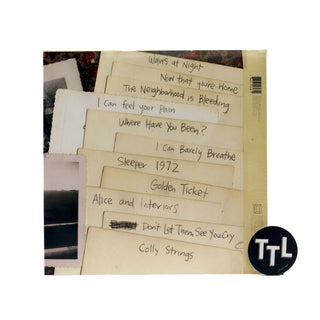 Wolves at Night
Now that you're Home
The Neighborhood is Bleeding
I can feel your Pain
Where Have You Been?
I Can Barely Breathe
Sleeper 1972
Golden Ticket
Alice and Interiors
Don't Let Them See You Cry
Colly Strings
TTL